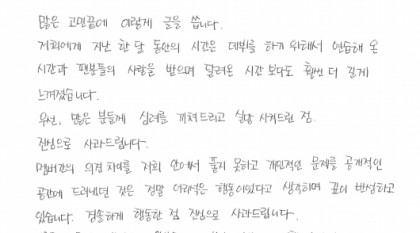 많은 고민끝에 이렇게 글을 씁니다.
저희에게 지난 한 달 동안의 시간은 데뷔를 하기 위해서 연습해 온
시간과 팬분들의 사랑을 받으며 달려온 시간 보다도 훨씬 더 길게
느껴졌습니다.
우선, 많은 분들께 심려를 끼쳐드리고 실망 시켜드린 점.
진심으로 사과드립니다.
멤버간의 의견 차이를 저희 안에서 풀지 못하고 개인적인 문제를 공개적인
공간에 드러냈던 것은 정말 어리석은 행동이었다고 생각하며 깊이 반성하고
있습니다. 경솔하게 행동한 점 진심으로 사과드립니다.